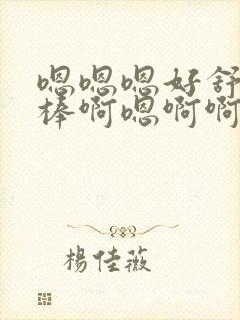 嗯嗯嗯好舒
棒啊嗯啊啊
楊佳薇